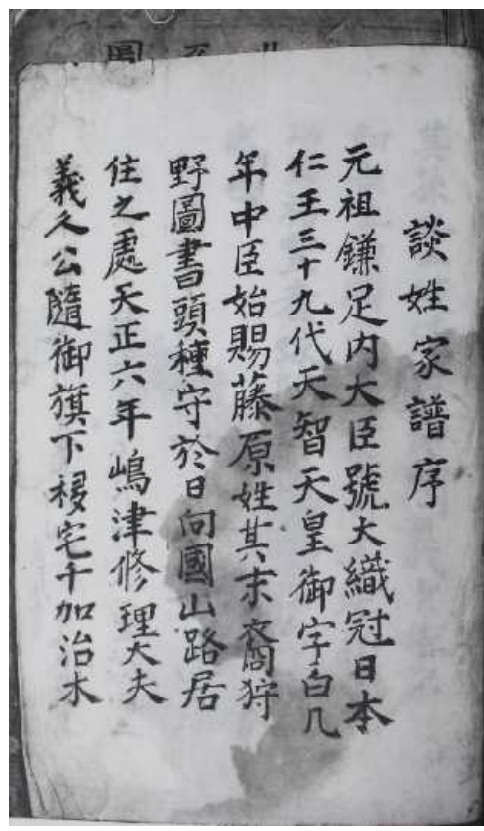 談姓家譜序
元祖鎌足内大臣號大織冠日本
仁王三十九代天智天皇御字白凡
年中臣始賜藤原姓其末裔狩
野圖書頭種守於日向國山路居
住之處天正六年嶋津修理大夫
義久公隨御旗下移宅于加治木